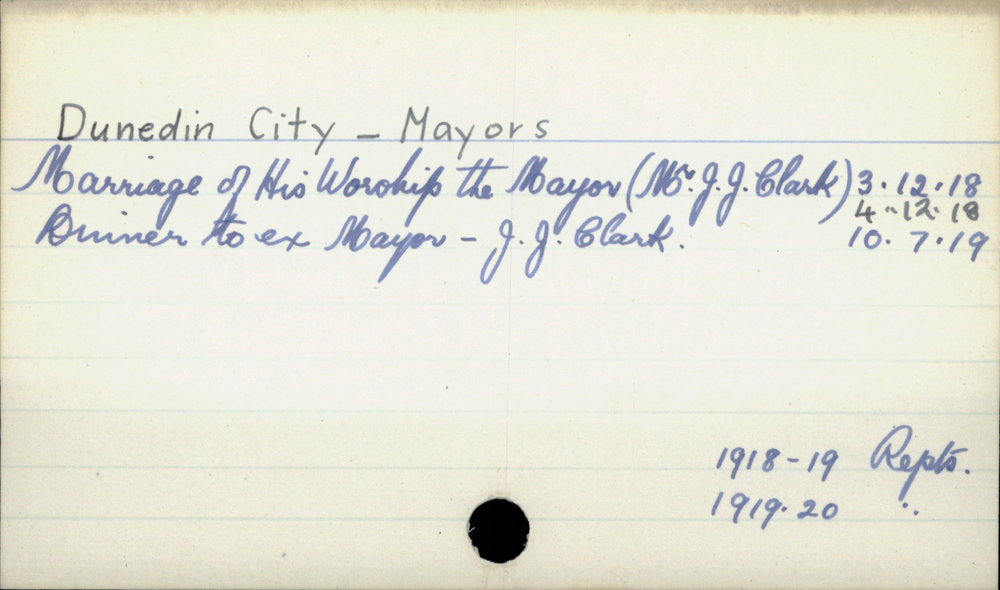 Dunedin City - Mayors
Marriage of His Worship the Mayor (Mr. J.J. Clark) 3.12.18
4.12.18
Dinner to ex Mayor - J.J. Clark. 10.7.19
1918-19 Repts.
1919.20 "